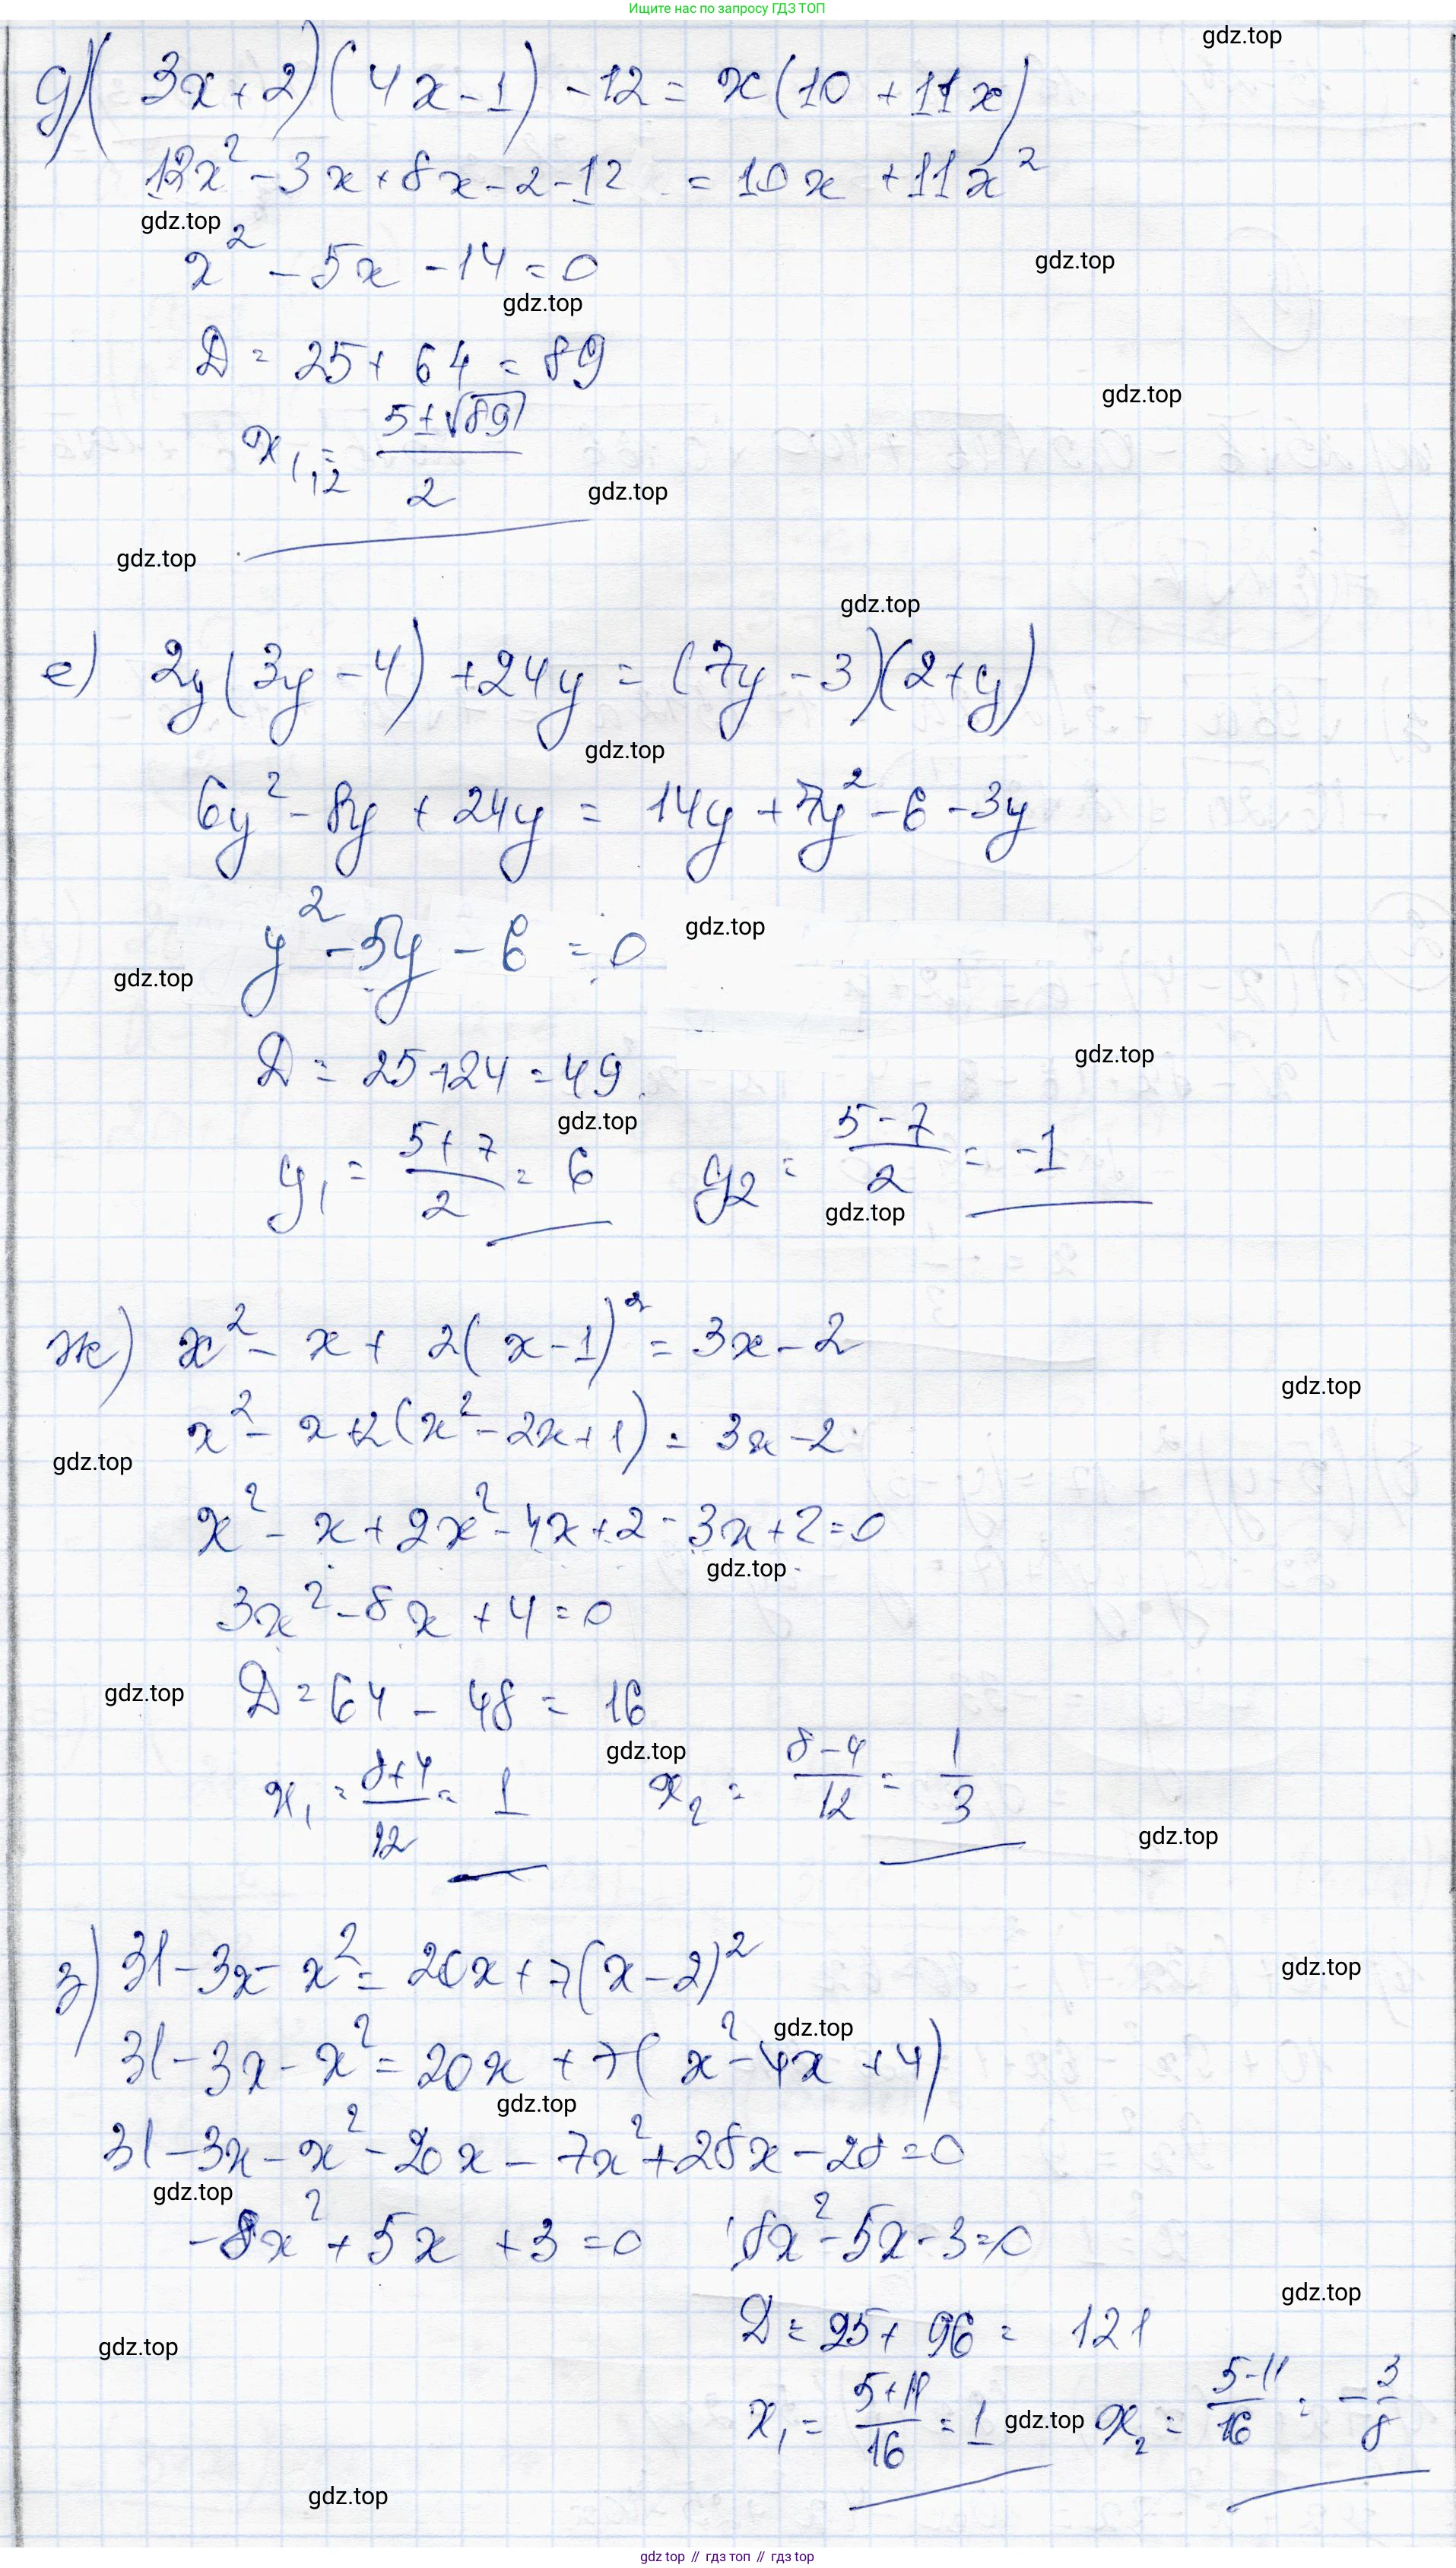 Ищите нас по запросу ГДЗ ТОП
gdz.top
д) (3x+2)(4x-1) -12 = x(10 +11x)
12x² -3x+8x-2-12 = 10x +11x²
gdz.top
gdz.top
x² -5x -14=0
gdz.top
D = 25+ 64 = 89
gdz.top
x₁,₂ = (5±√89)/2
gdz.top
gdz.top
gdz.top
е) 2y(3y-4) +24y = (7y-3)(2+y)
gdz.top
6y² -8y +24y = 14y +7y² -6 -3y
gdz.top
y² -5y -6 =0
gdz.top
gdz.top
D = 25+24 =49
gdz.top
y₁ = (5+7)/2 = 6 y₂ = (5-7)/2 = -1
gdz.top
ж) x² - x + 2(x-1)² = 3x-2
gdz.top
x² - x+2(x² -2x+1) = 3x-2
gdz.top
x² - x+2x² -4x+2 -3x+2=0
gdz.top
3x² -8x +4=0
gdz.top
D=64 - 48 = 16
gdz.top
x₁ = (8+4)/12 = 1 x₂ = (8-4)/12 = 1/3
gdz.top
з) 31-3x- x² = 20x+7(x-2)²
gdz.top
gdz.top
31-3x-x² =20x +7(x² -4x +4)
gdz.top
31-3x-x² -20x - 7x² +28x-28=0
gdz.top
-8x² +5x +3=0 8x² -5x-3=0
gdz.top
D = 25+ 96 = 121
gdz.top
x₁ = (5+11)/16 =1 gdz.top x₂ = (5-11)/16 = -3/8
gdz.top
gdz top // гдз топ // гдз top